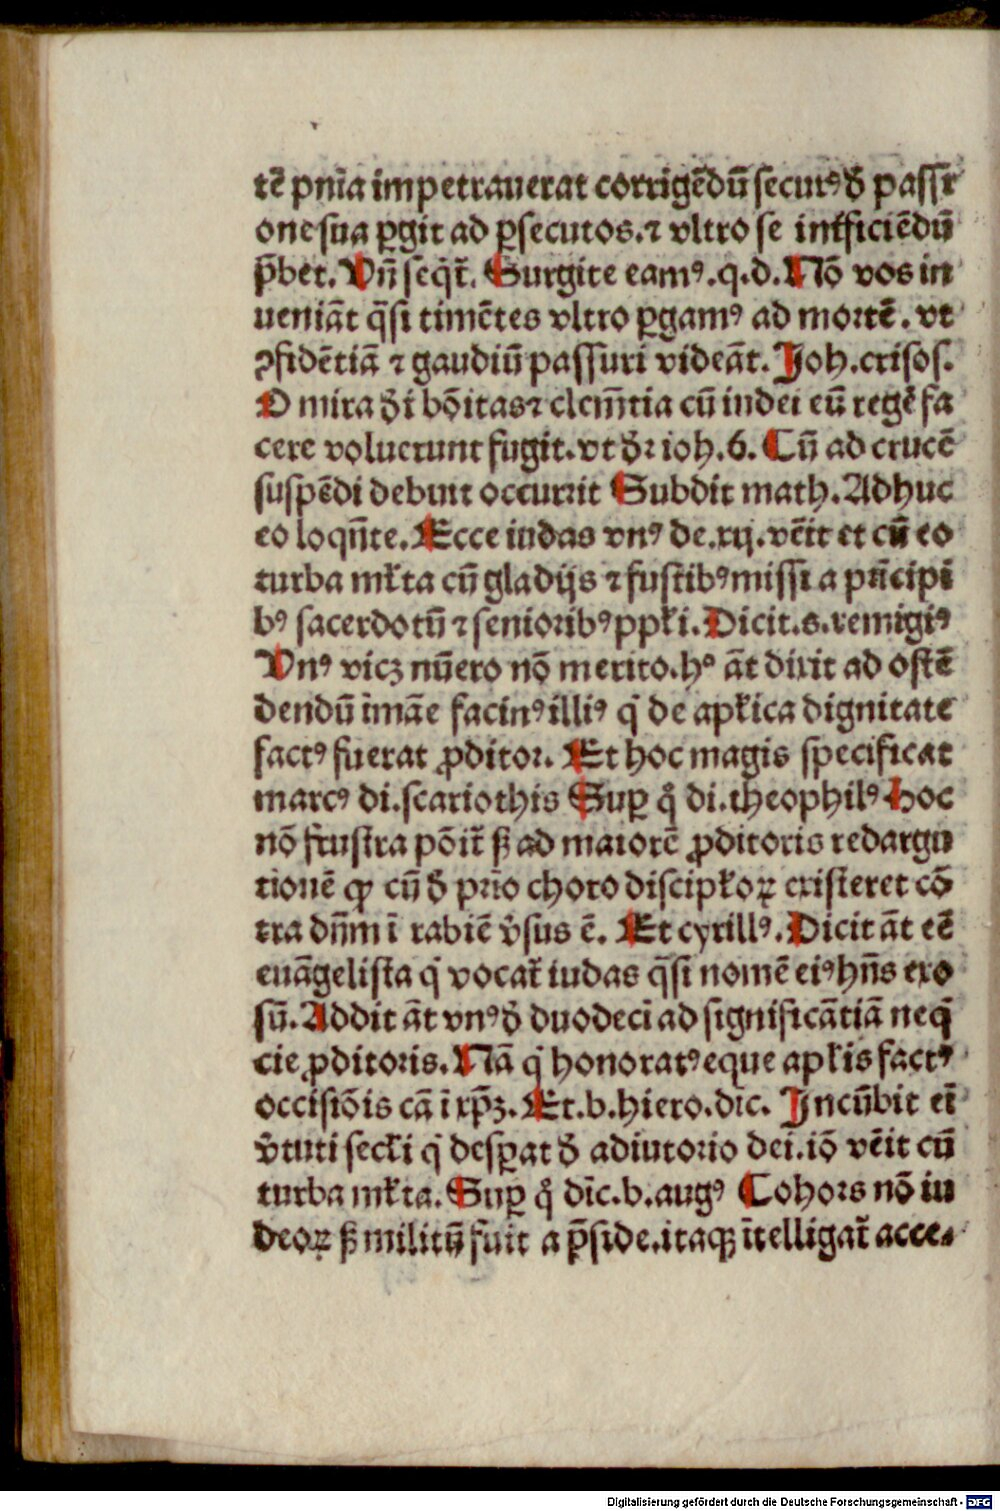 tē pn̄ia impetrauerat corrigēdū secur⁹ đ passi
one sua ꝑgit ad ꝑsecutos.⁊ vltro se intficiēdū
p̄bet. Vn̄ seq̄t̄. Surgite eam⁹.q.d. Nō vos in
ueniāt q̄si timētes vltro ꝑgam⁹ ad mortē. vt
ꝯfidētiā ⁊ gaudiū passuri videāt. Joh.crisos.
O mira đi bōitas ⁊ clem̄tia cū iudei eū regē fa
cere voluerunt fugit. vt đꝛ ioh.6. Cū ad crucē
suspēdi debuit occurrit Subdit math. Adhuc
eo loqn̄te. Ecce iudas vn⁹ de.xij.vēit et cū eo
turba mł̄ta cū gladijs ⁊ fustib⁹ missi a pn̄cipi
b⁹ sacerdotū ⁊ seniorib⁹ ppłi. Dicit.s.remigi⁹
Vn⁹ vicꝫ nūero nō merito.h° āt dixit ad ostē
dendū īmāe facin⁹ illi⁹ q̇ de apłica dignitate
fact⁹ fuerat ꝓditor. Et hoc magis specificat
marc⁹ di.scariothis Suꝑ q̊ di.theophil⁹ Hoc
nō frustra pōit̄ sꝫ ad maiorē ꝓditoris redargu
tionē qꝫ cū đ prīo choro discipłoꝝ existeret cō
tra dn̄m ī rabiē v̓sus ē. Et cyrill⁹. Dicit āt eē
euāgelista q̇ vocat̄ iudas q̄si nomē ei⁹ hn̄s exo
sū. Addit āt vn⁹ đ duodeci ad significātiā neq̇
cie ꝓditoris. Nā q̇ honorat⁹ eque apłis fact⁹
occisiōis cā ī xp̄ꝫ. Et.b.hiero.dīc. Jncūbit eī
v̓tuti secłi q̇ desꝑat đ adiutorio dei.iō vēit cū
turba mł̄ta. Suꝑ q̊ dīc.b.aug⁹ Cohors nō iu
deoꝝ sꝫ militū fuit a p̄side.itaqꝫ ītelligat̄ acce⸗
Digitalisierung gefördert durch die Deutsche Forschungsgemeinschaft - DFG